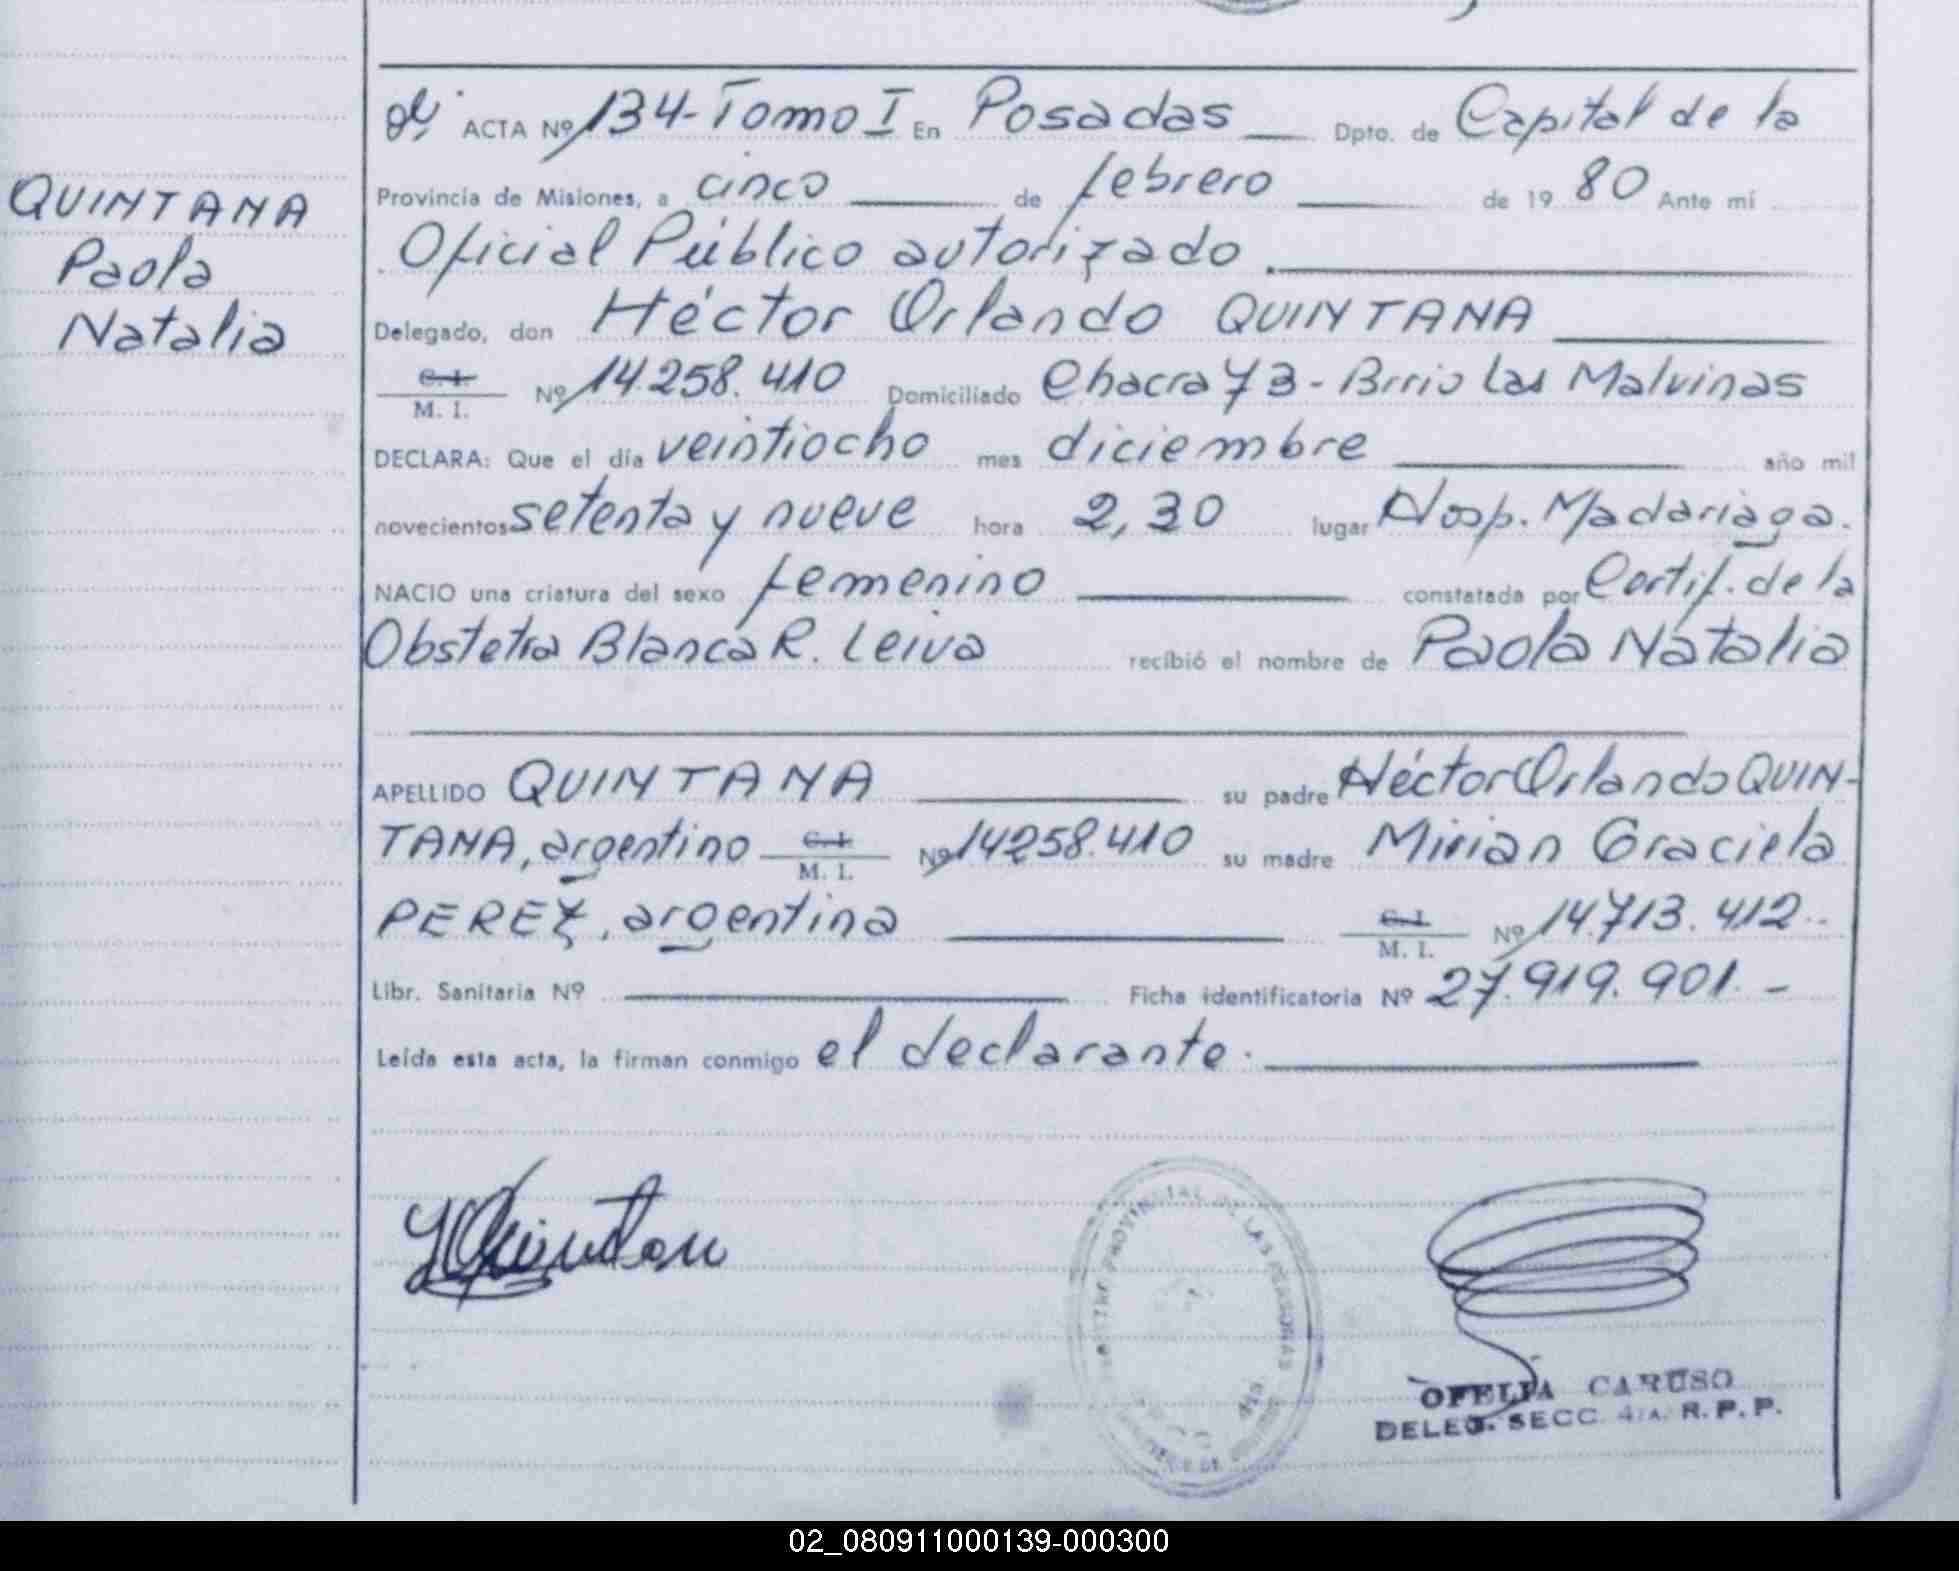 ACTA Nº 134-Tomo I En Posadas Dpto. de Capital de la
Provincia de Misiones, a cinco de febrero de 19 80 Ante mí
Oficial Público autorizado.
Delegado, don Héctor Orlando QUINTANA
C. I. M. I. Nº 14.258.410 Domiciliado Chacra 73 - Brrio Las Malvinas
DECLARA: Que el día veintiocho mes diciembre año mil
novecientos setenta y nueve hora 2,30 lugar Hosp. Madariaga.
NACIO una criatura del sexo femenino constatada por Certif. de la
Obstetra Blanca R. Leiva recibió el nombre de Paola Natalia
APELLIDO QUINTANA su padre Héctor Orlando QUIN-
TANA, argentino C. I. M. I. Nº 14258.410 su madre Mirian Graciela
PEREZ, argentina C. I. M. I. Nº 14.713.412
Libr. Sanitaria Nº Ficha identificatoria Nº 27.919.901.-
Leída esta acta, la firman conmigo el declarante.
QUINTANA
Paola
Natalia
PROVINCIAL DE LAS PERSONAS
OFELIA CARUSO
DELEG. SECC. 4TA. R.P.P.
02_080911000139-000300